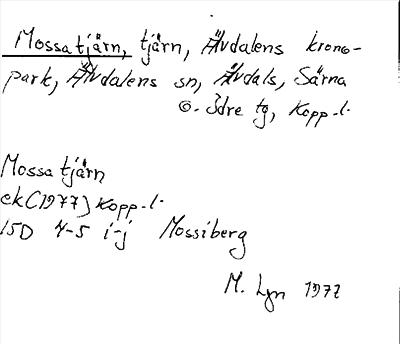 Mossatjärn, tjärn, Älvdalens krono-
park, Älvdalens sn, Älvdals, Särna
o. Idre tg, Kopp. l.
Mossatjärn
ek (1977) Kopp. l.
15D 4-5 i-j Mossiberg
M. Lgn 1977